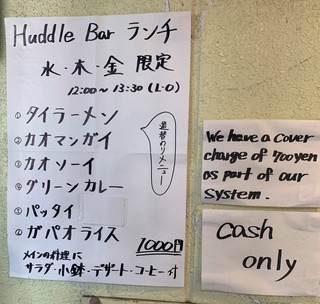 Huddle Bar ランチ
水・木・金 限定
12:00～13:30 (L・O)
① タイラーメン
② カオマンガイ
③ カオソーイ
④ グリーンカレー
⑤ パッタイ
⑥ ガパオライス
週替わりメニュー
1000円
メインの料理に
サラダ・小鉢・デザート・コーヒー付
We have a cover
charge of 700yen
as part of our
system.
cash
only